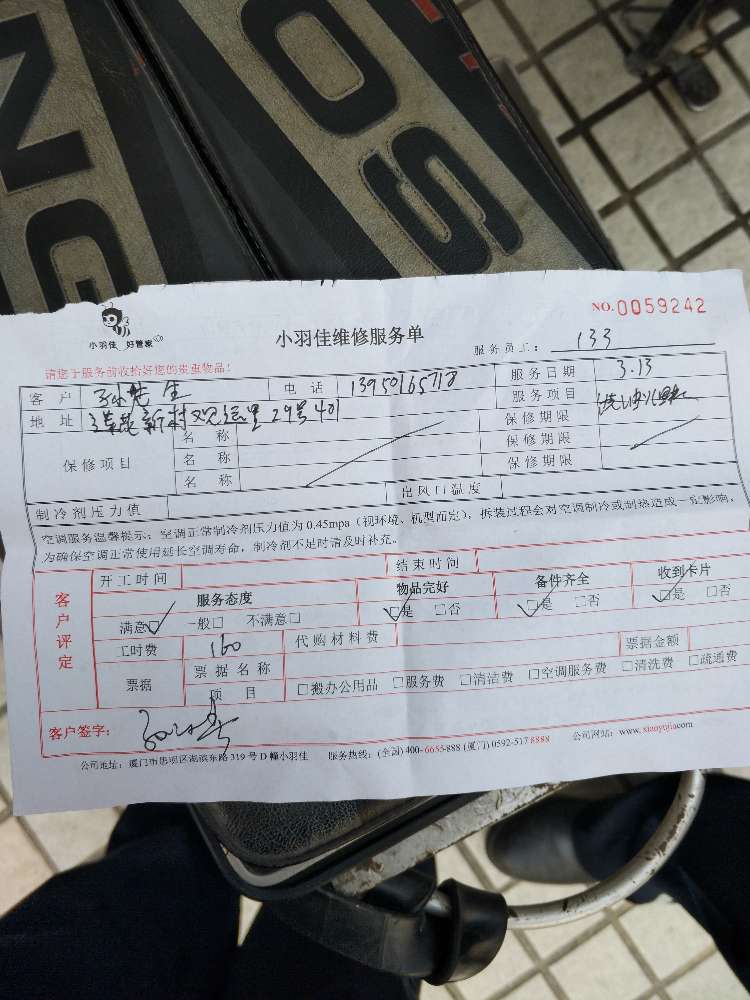 NG
OS
小羽佳 好管家
小羽佳维修服务单
NO.0059242
服务员工： 133
请您于服务前收拾好您的贵重物品！
客户 孙先生 电话 13950165718 服务日期 3.13
地址 莲花新村观远里29号401 服务项目
保修项目 名称 保修期限
名称 保修期限
名称 保修期限
制冷剂压力值 出风口温度
空调服务温馨提示：空调正常制冷剂压力值为0.45mpa（视环境、机型而定），拆装过程会对空调制冷或制热造成一定影响，
为确保空调正常使用延长空调寿命，制冷剂不足时请及时补充。
客户评定
开工时间 结束时间
服务态度 物品完好 备件齐全 收到卡片
满意☑ 一般□ 不满意□ ☑是 □否 ☑是 □否 ☑是 □否
工时费 160 代购材料费
票据 票据名称 票据金额
项目 □搬办公用品 □服务费 □清洁费 □空调服务费 □清洗费 □疏通费
客户签字：
公司地址：厦门市思明区湖滨东路319号D幢小羽佳 服务热线：(全国)400-6655-888 (厦门)0592-5178888 公司网站：www.xiaoyujia.com